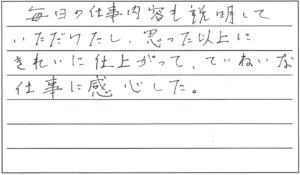 毎日の仕事内容も説明して
いただけたし、思った以上に
きれいに仕上がって、ていねいな
仕事に感心した。